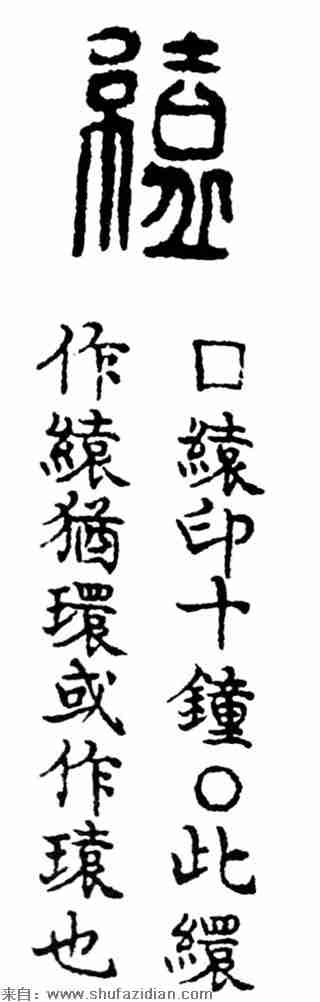 縤
□縤印十鐘○此繯
作縤猶環或作瑗也
来自：www.shufazidian.com